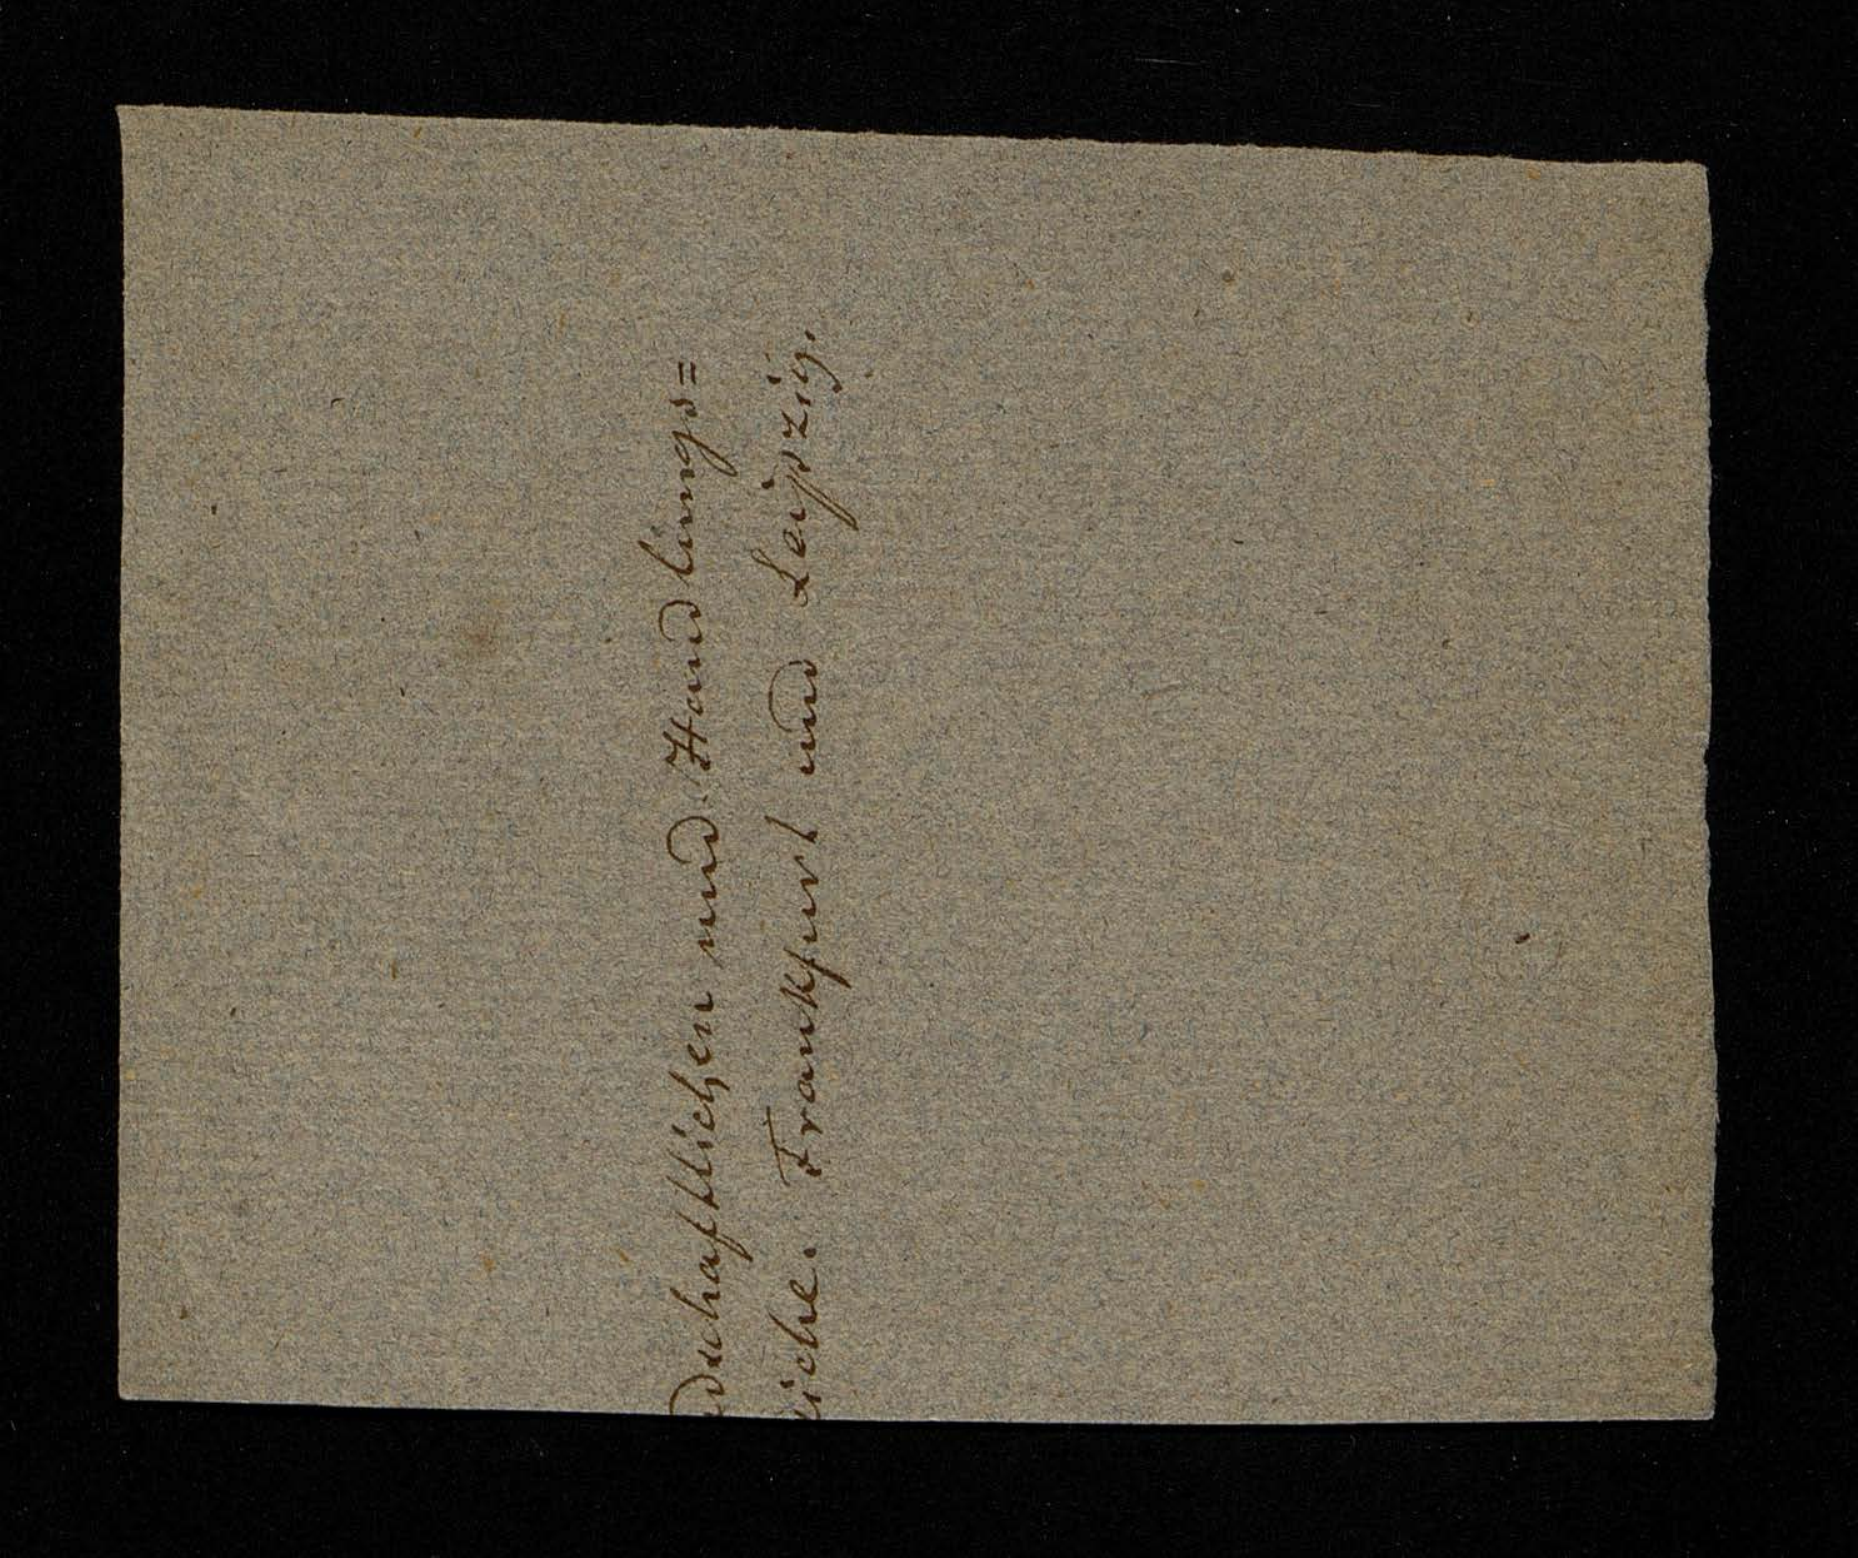 dschaftlichen und Handlungs=
eiche. Frankfurt und Leipzig.